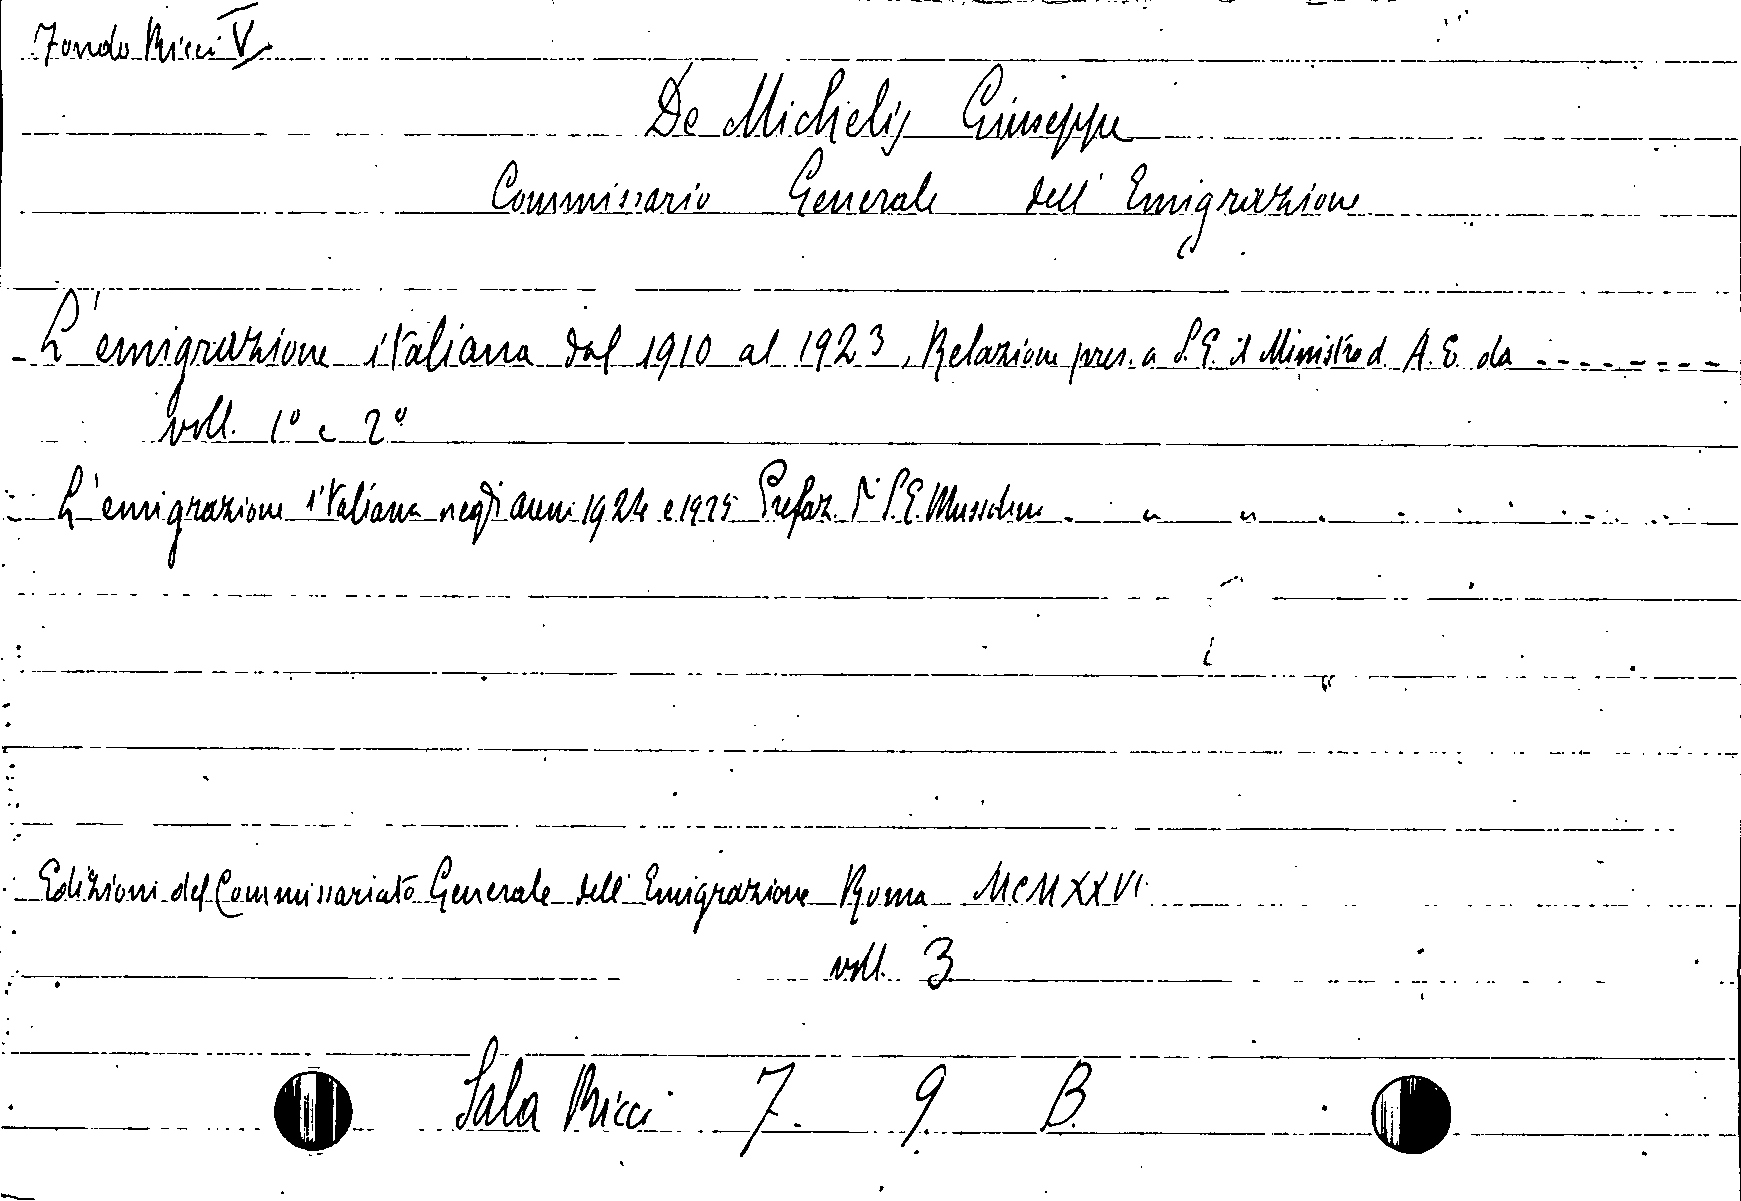 Fondo Ricci V
De Michelis Giuseppe
Commissario Generale dell'Emigrazione
- L'emigrazione italiana dal 1910 al 1923, Relazione pres. a S.E. il Ministro d. A.E. da --------
voll. 1º e 2º
L'emigrazione italiana negli anni 1924 e 1925 Prefaz. di S.E. Mussolini
Edizioni del Commissariato Generale dell'Emigrazione Roma MCMXXVI
voll. 3
Sala Ricci 7. 9. B.